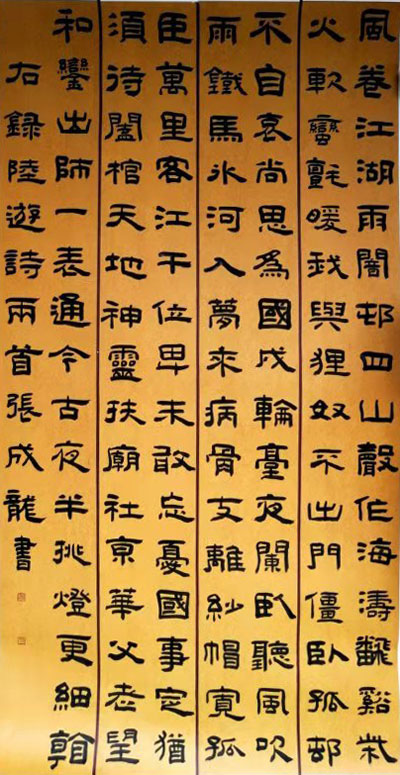 風卷江湖雨闇邨四山聲作海濤飜谿柴
火軟蠻氈暖我與狸奴不出門僵臥孤邨
不自哀尚思為國戍輪臺夜闌臥聽風吹
雨鐵馬氷河入夢來病骨支離紗帽寬孤
臣萬里客江干位卑未敢忘憂國事定猶
須待闔棺天地神靈扶廟社京華父老望
和鑾出師一表通今古夜半挑燈更細看
右錄陸遊詩兩首張成龍書